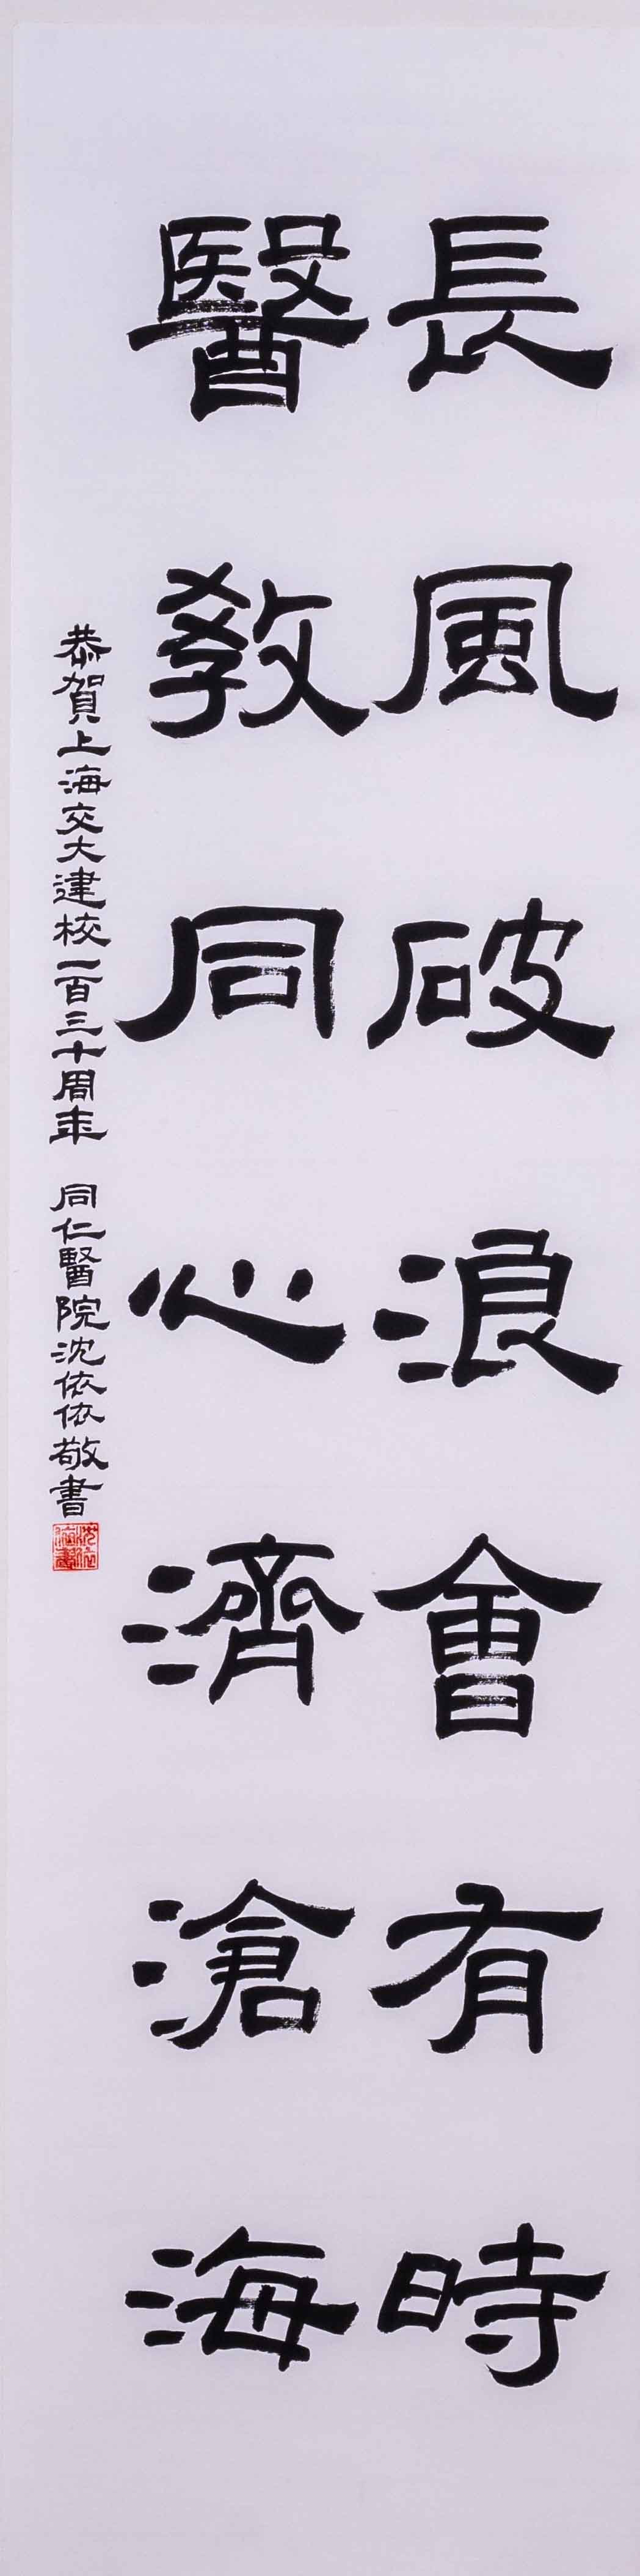 長風破浪會有時
醫教同心濟滄海
恭賀上海交大建校一百三十周年 同仁醫院沈依依敬書